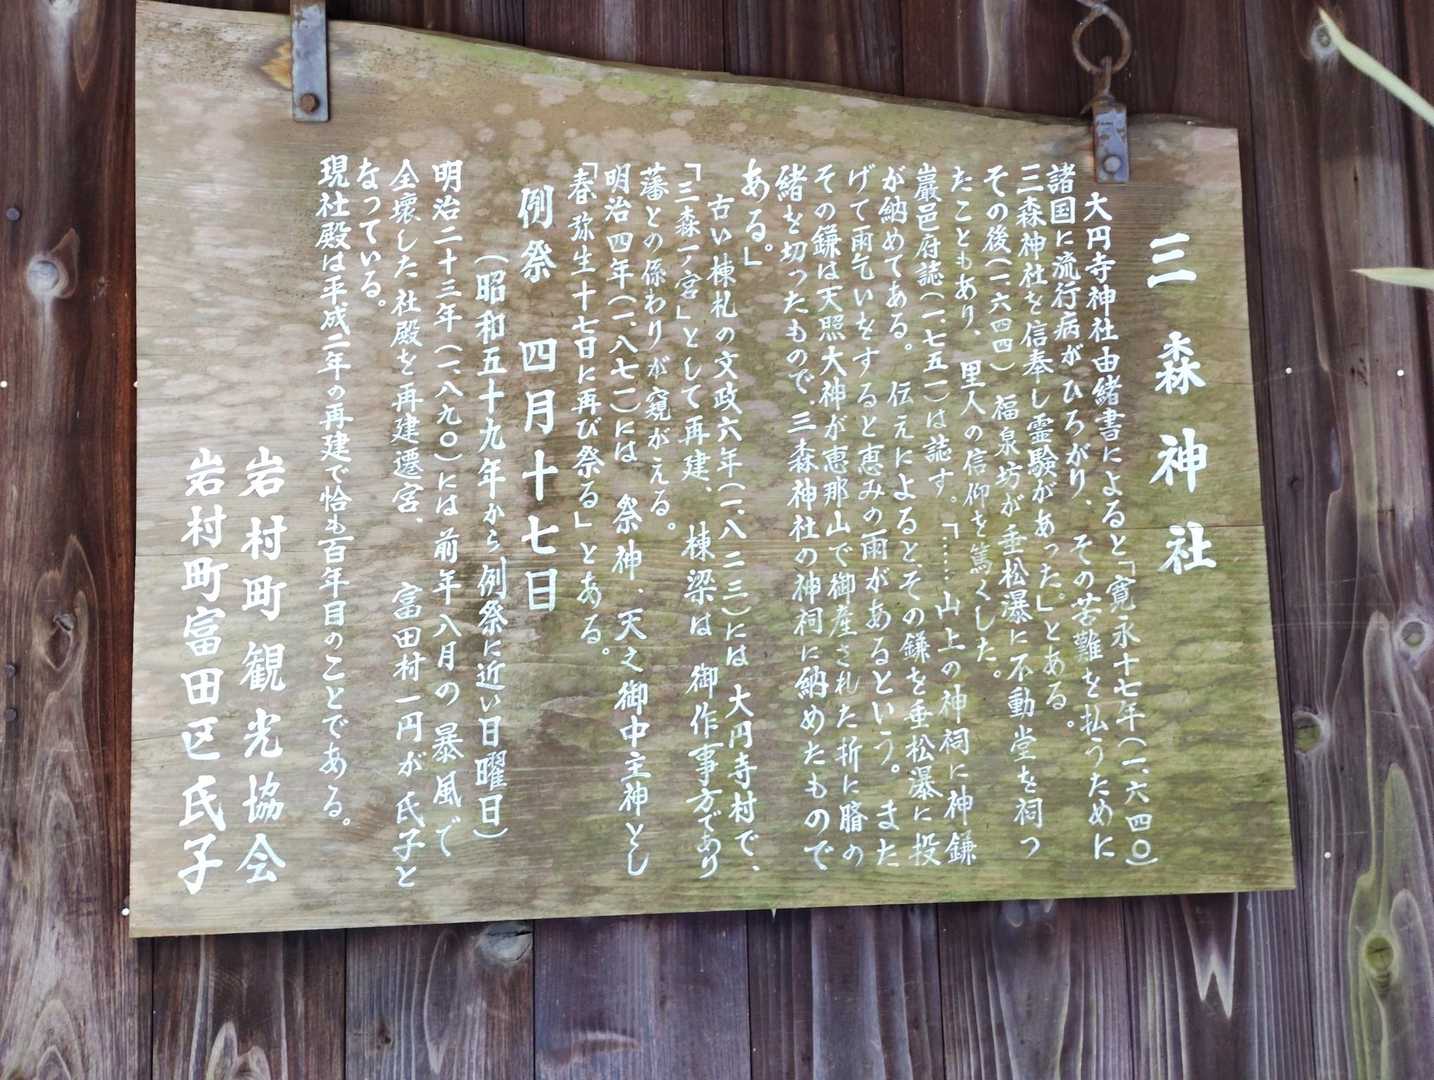 三森神社
大円寺神社由緒書によると「寛永十七年（一、六四〇）
諸国に流行病がひろがり、その苦難を払うために
三森神社を信奉し霊験があった。」とある。
その後（一、六四四）福泉坊が垂松瀑に不動堂を祠っ
たこともあり、里人の信仰を篤くした。
巖邑府誌（一、七五一）は誌す。「……山上の神祠に神鎌
が納めてある。伝えによるとその鎌を垂松瀑に投
げて雨乞いをすると恵みの雨があるという。また
その鎌は天照大神が恵那山で御産された折に臍の
緒を切ったもので、三森神社の神祠に納めたもので
ある。」
古い棟札の文政六年（一、八二三）には 大円寺村で、
「三森一ノ宮」として再建、棟梁は 御作事方であり
藩との係わりが窺がえる。
明治四年（一、八七一）には 祭神、天之御中主神とし
「春弥生十七日に再び祭る」とある。
例祭 四月十七日
（昭和五十九年から例祭に近い日曜日）
明治二十三年（一、八九〇）には前年八月の暴風で
全壊した社殿を再建遷宮、 富田村一円が氏子と
なっている。
現社殿は平成二年の再建で恰も百年目のことである。
岩村町観光協会
岩村町富田区氏子